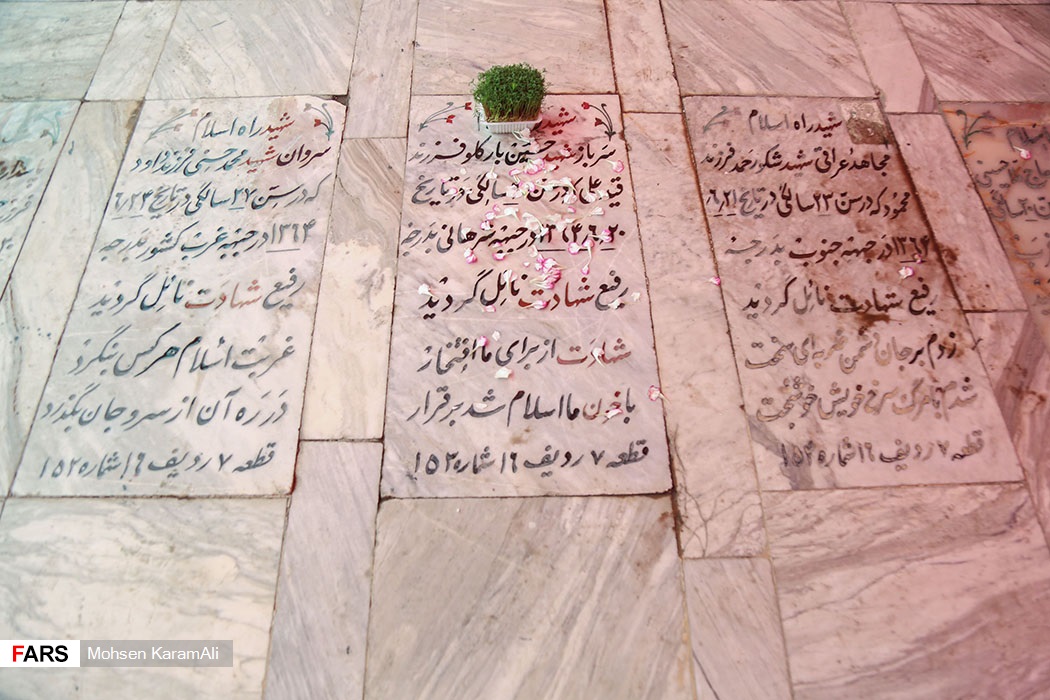 شهید راه اسلام
سروان شهید محمد حسنی فرزند داود
که در سن ۲۷ سالگی در تاریخ ۶/۲۴
۱۳۶۴ در جبهه غرب کشور بدرجه
رفیع شهادت نائل گردید
غربت اسلام هر کس بنگرد
در ره آن از سر و جان بگذرد
قطعه ۷ ردیف ۱۶ شماره ۱۵۲
شهید
سرباز شهید حسین بارکلو فرزند
علی که در سن سالگی در تاریخ
۱۳۶۴٫۶٫۲۰ در جبهه سرهانی بدرجه
رفیع شهادت نائل گردید
شهادت از برای ما افتخار
با خون ما اسلام شد برقرار
قطعه ۷ ردیف ۱۶ شماره ۱۵۳
شهید راه اسلام
مجاهد عراقی شهید شکور حمد فرزند
محمود که در سن ۲۳ سالگی در تاریخ ۶/۲۱
۱۳۶۴ در جبهه جنوب بدرجه
رفیع شهادت نائل گردید
زدم بر جان دشمن ضربه‌ای سخت
شدم با مرگ سرخ خویش خوشبخت
قطعه ۷ ردیف ۱۶ شماره ۱۵۴
FARS
Mohsen KaramAli